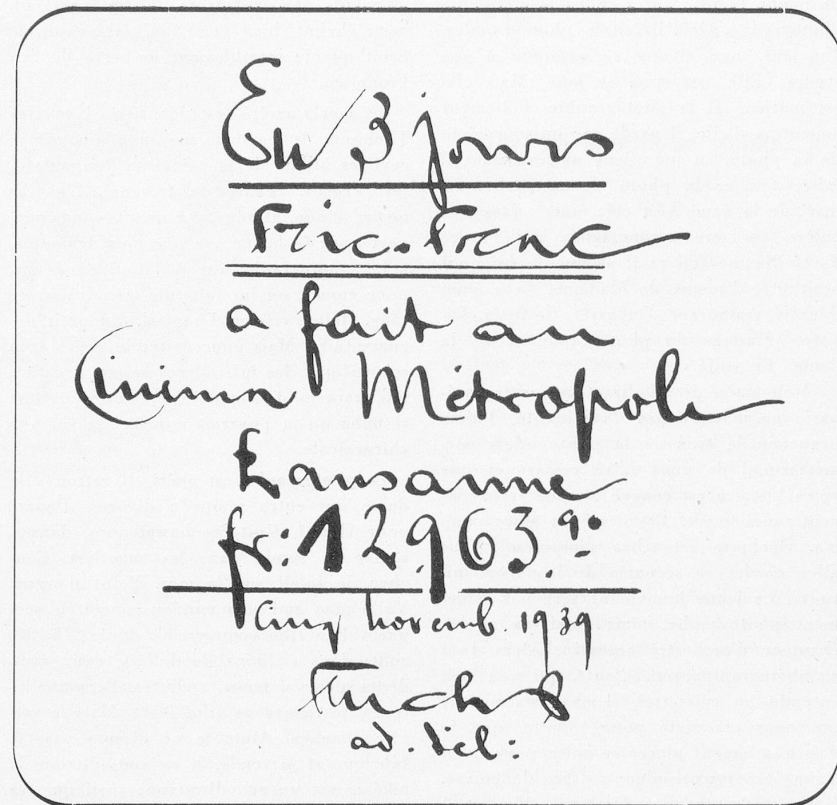 En 3 jours
Fric-Frac
a fait au
Cinéma Métropole
Lausanne
fr: 12963.90
Cinq novemb. 1939
Fuchs
ad. dél: